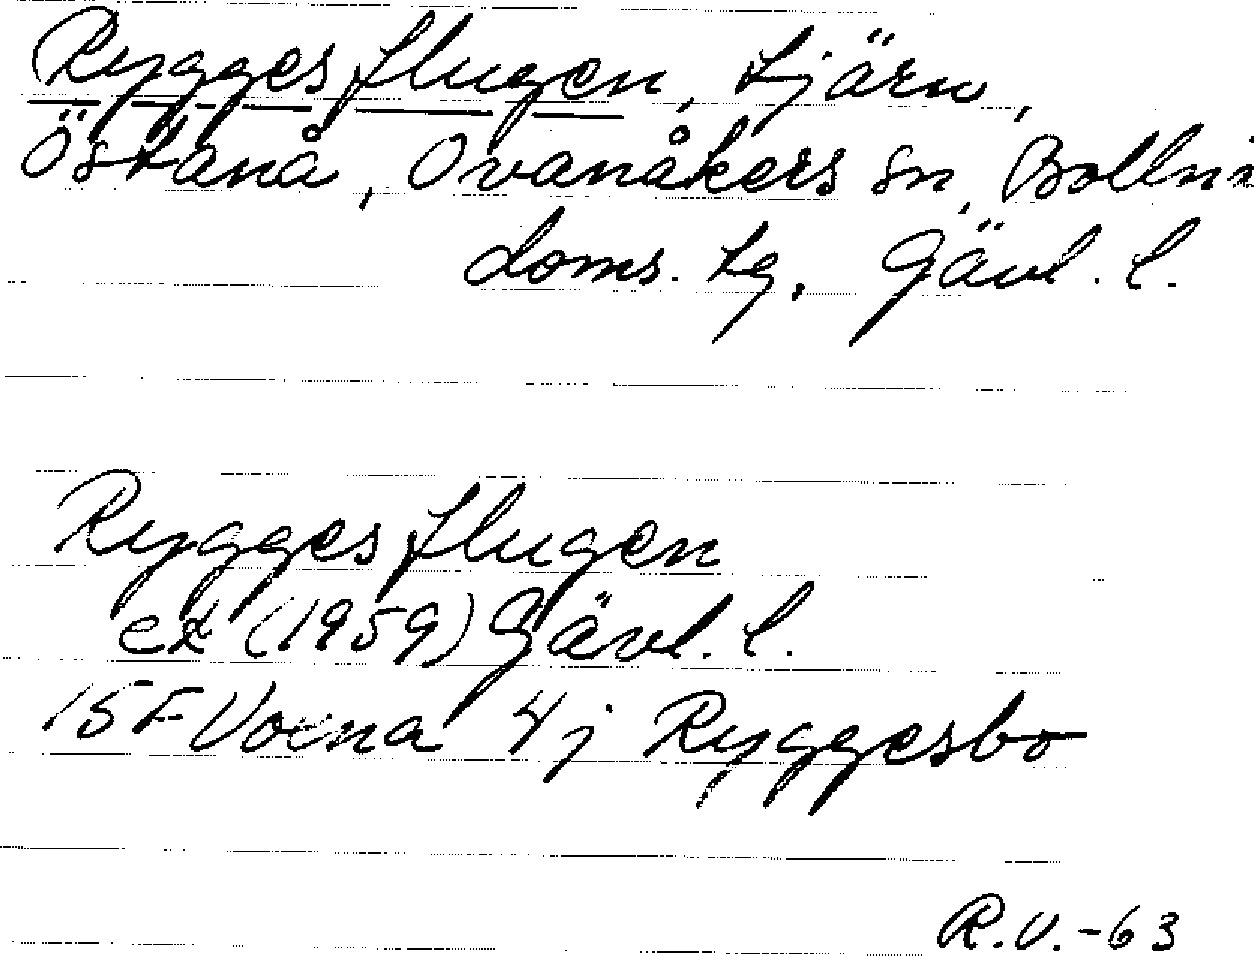 Ryggesflugen, tjärn,
Östanå, Ovanåkers sn, Bollnä
doms. tg, Gävl. l.
Ryggesflugen
ek (1959) Gävl. l.
15F Voxna 4j Ryggesbo
R.V.-63